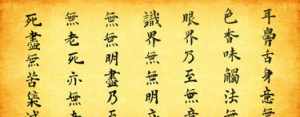 耳鼻舌身意無
色香味觸法無
眼界乃至無意
識界無無明亦
無無明盡乃至
無老死亦無
死盡無苦集滅